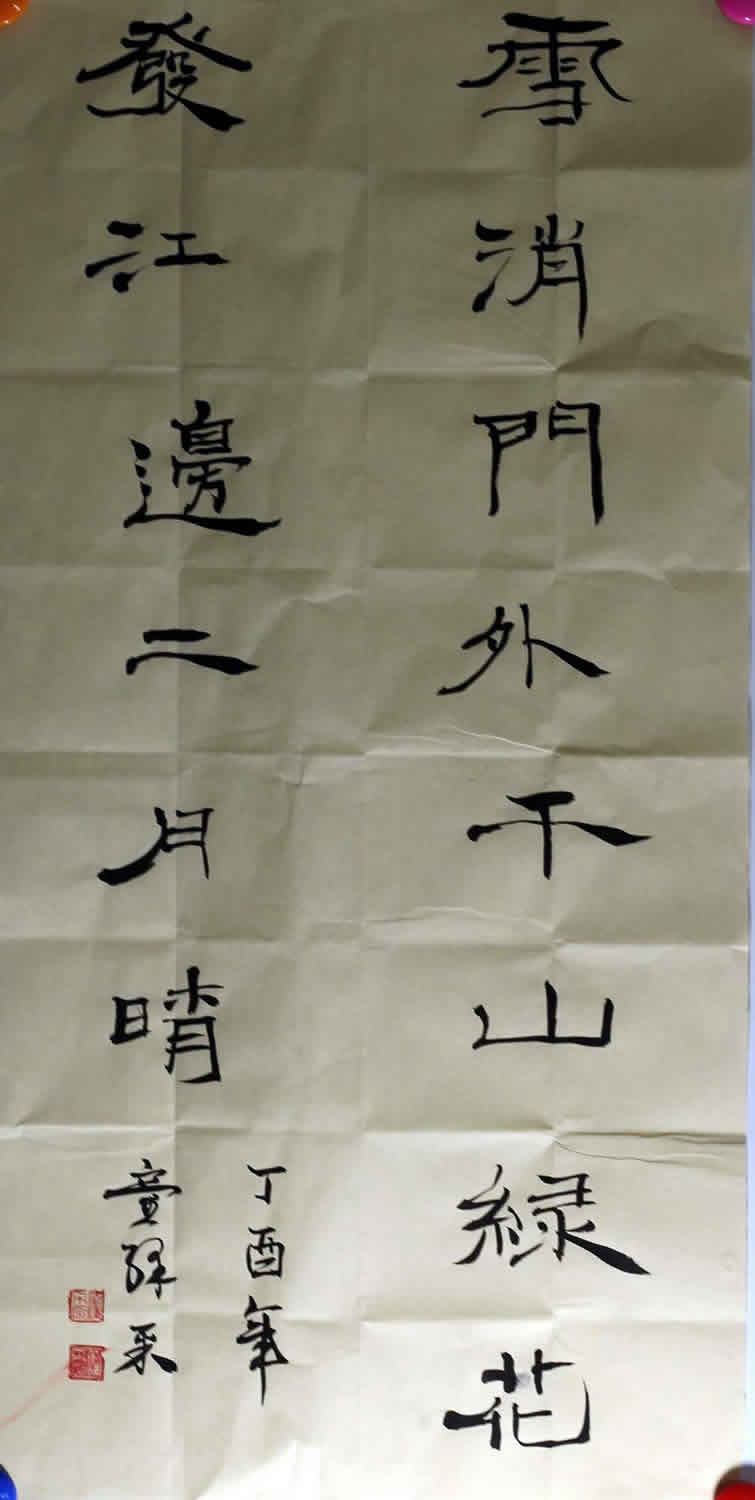 雪消門外千山綠花
發江邊二月晴
丁酉年